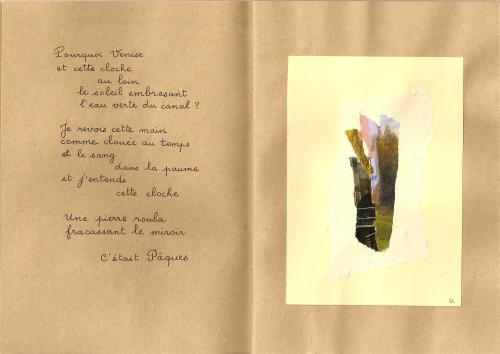 Pourquoi Venise
et cette cloche
au loin
le soleil embrasant
l'eau verte du canal ?
Je revois cette main
comme clouée au temps
et le sang
dans la paume
et j'entends
cette cloche
Une pierre roula
fracassant le miroir
C'était Pâques